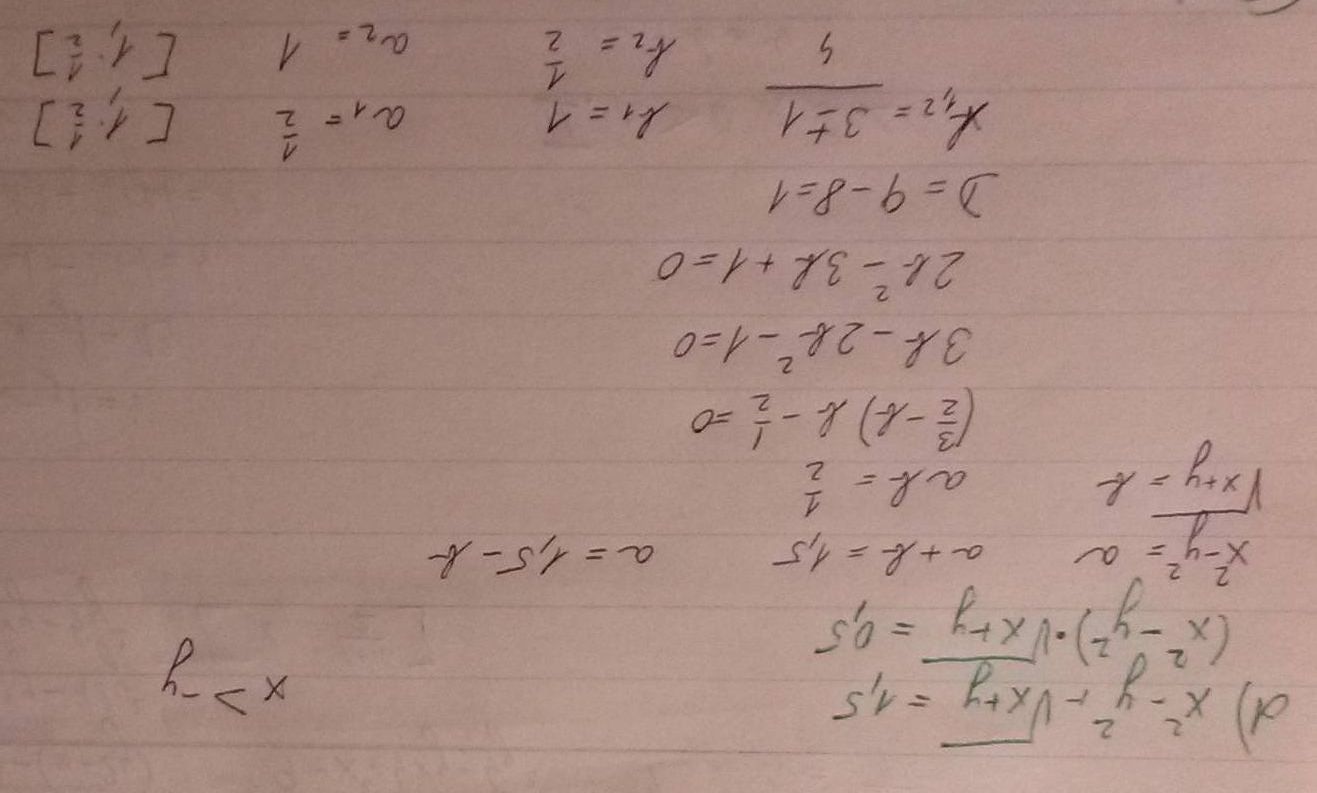 d) x² - y² + √(x+y) = 1,5
(x² - y²)·√(x+y) = 0,5 x > -y
x² - y² = a a + b = 1,5 a = 1,5 - b
√(x+y) = b ab = 1/2
(3/2 - b) b - 1/2 = 0
3b - 2b² - 1 = 0
2b² - 3b + 1 = 0
D = 9 - 8 = 1
b₁,₂ = (3 ± 1)/4 b₁ = 1 a₁ = 1/2 [1; 1/2]
b₂ = 1/2 a₂ = 1 [1; 1/2]